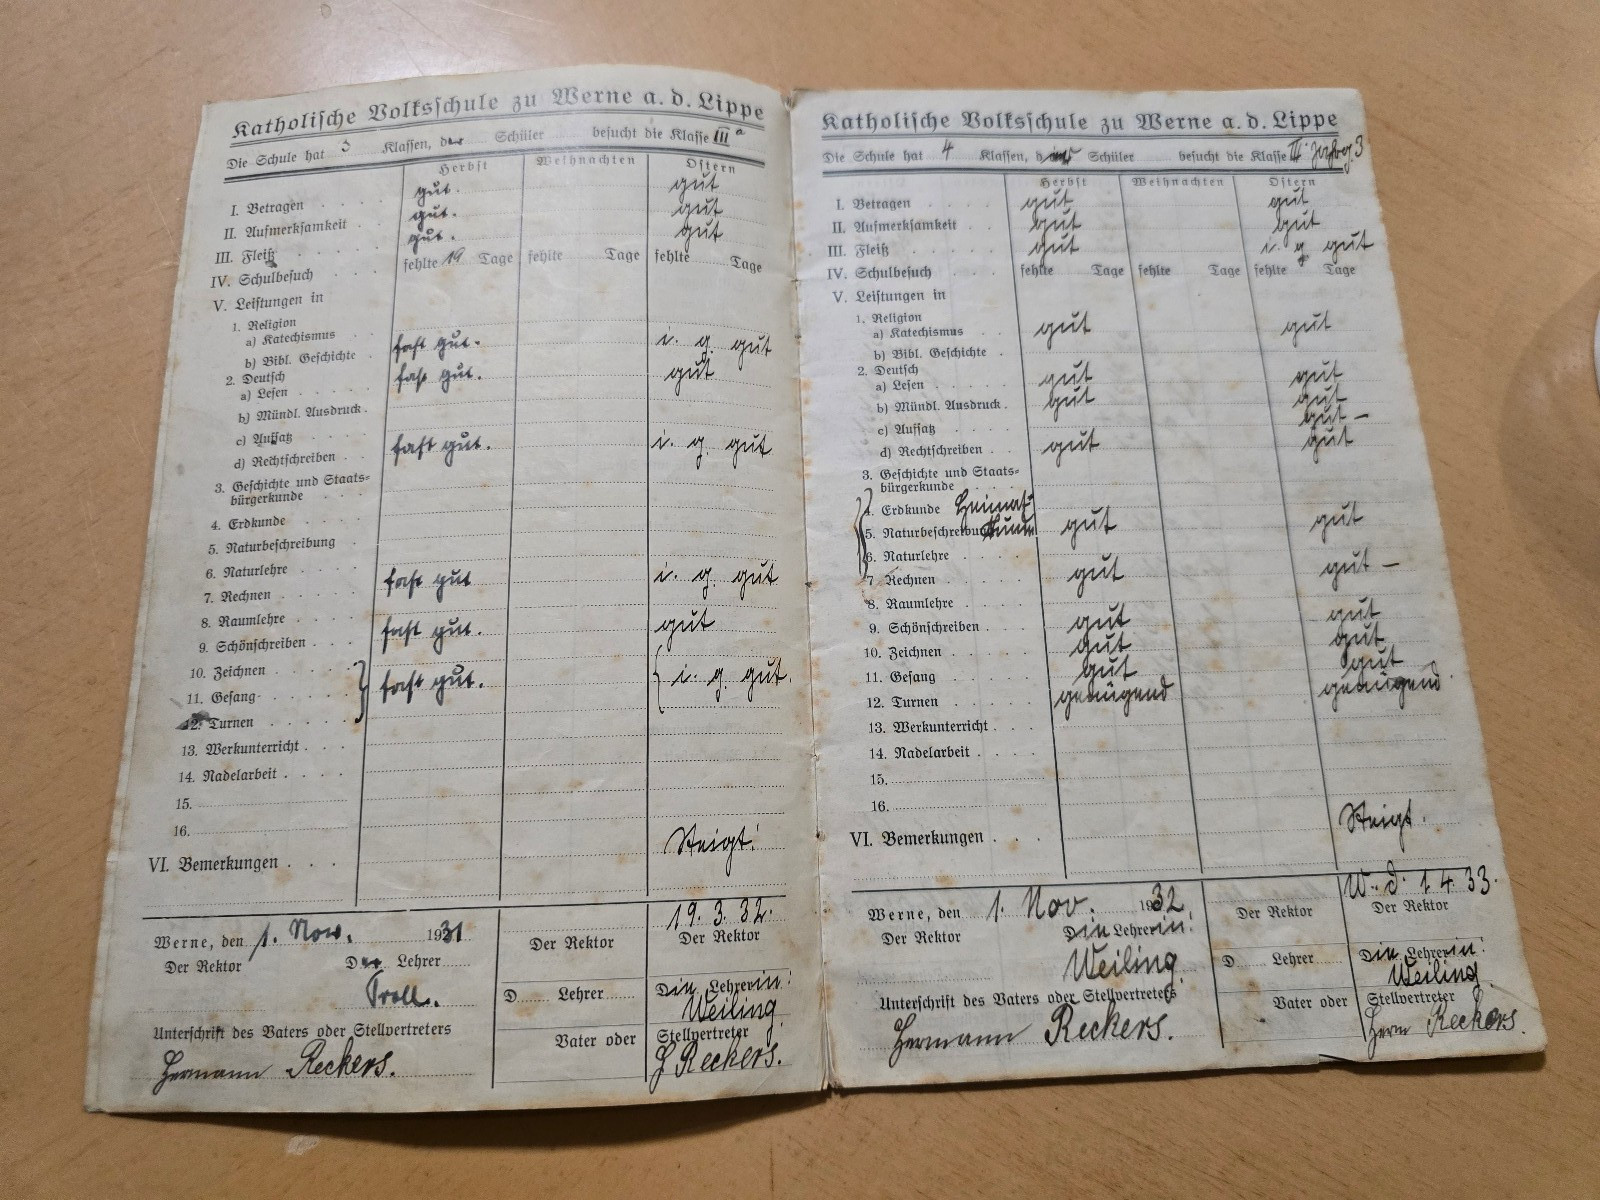 Katholische Volksschule zu Werne a. d. Lippe
Die Schule hat 3 Klassen, der Schüler besucht die Klasse III a
Herbst Weihnachten Ostern
I. Betragen gut. gut
II. Aufmerksamkeit gut. gut
III. Fleiß gut. gut
IV. Schulbesuch fehlte 19 Tage fehlte Tage fehlte Tage
V. Leistungen in
1. Religion
a) Katechismus
b) Bibl. Geschichte fast gut. i. g. gut
2. Deutsch
a) Lesen fast gut. gut
b) Mündl. Ausdruck
c) Aufsatz
d) Rechtschreiben fast gut. i. g. gut
3. Geschichte und Staats-
bürgerkunde
4. Erdkunde
5. Naturbeschreibung
6. Naturlehre
7. Rechnen fast gut i. g. gut
8. Raumlehre
9. Schönschreiben fast gut. gut
10. Zeichnen
11. Gesang fast gut. i. g. gut.
12. Turnen
13. Werkunterricht
14. Nadelarbeit
15.
16.
VI. Bemerkungen Steigt!
Werne, den 1. Nov. 1931 19. 3. 32.
Der Rektor Der Lehrer Der Rektor Der Rektor
Troll. D Lehrer Die Lehrerin:
Weiling
Unterschrift des Vaters oder Stellvertreters Vater oder Stellvertreter
Hermann Reckers. H Reckers.
Katholische Volksschule zu Werne a. d. Lippe
Die Schule hat 4 Klassen, d Schüler besucht die Klasse III. 3
Herbst Weihnachten Ostern
I. Betragen gut gut
II. Aufmerksamkeit gut gut
III. Fleiß gut i. g. gut
IV. Schulbesuch fehlte Tage fehlte Tage fehlte Tage
V. Leistungen in
1. Religion
a) Katechismus gut gut
b) Bibl. Geschichte
2. Deutsch
a) Lesen gut gut
b) Mündl. Ausdruck gut gut
c) Aufsatz gut –
d) Rechtschreiben gut gut
3. Geschichte und Staats-
bürgerkunde
4. Erdkunde Heimat-
5. Naturbeschreibung kunde gut gut
6. Naturlehre
7. Rechnen gut gut –
8. Raumlehre
9. Schönschreiben gut gut
10. Zeichnen gut gut
11. Gesang gut gut
12. Turnen genügend genügend
13. Werkunterricht
14. Nadelarbeit
15.
16.
VI. Bemerkungen Steigt.
Werne, den 1. Nov. 1932 W. d. 1 4 33.
Der Rektor Die Lehrerin: Der Rektor Der Rektor
Weiling D Lehrer Die Lehrerin:
Weiling
Unterschrift des Vaters oder Stellvertreters Vater oder Stellvertreter
Hermann Reckers. Herm Reckers.